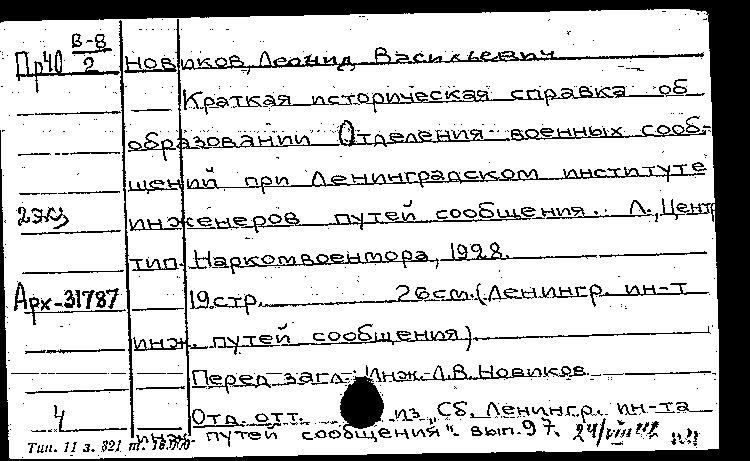 Пр40 В-8/2 Новиков, Леонид Васильевич
Краткая историческая справка об
образовании Отделения военных сооб-
щений при Ленинградском институте
2экз инженеров путей сообщения. Л., Центр
тип. Наркомвоенмора, 1928.
Арх-31787 19 стр. 26 см. (Ленингр. ин-т
инж. путей сообщения).
Перед загл.: Инж. Л.В. Новиков
Ч Отд. отт. из "Сб. Ленингр. ин-та
инж. путей сообщения". вып. 97.
Тип. 11 з. 821 т.